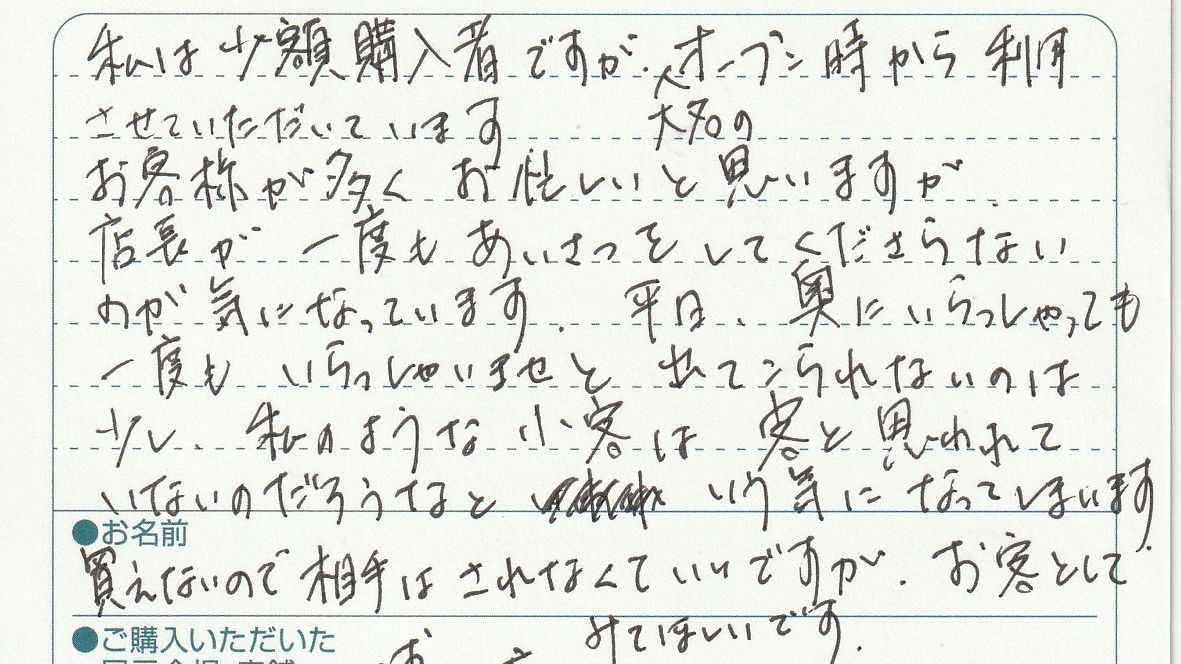 私は少額購入者ですが、オープン時から利用
させていただいています
大名の
お客様が多くお忙しいと思いますが、
店長が一度もあいさつをしてくださらない
のが気になっています。平日、奥にいらっしゃっても
一度もいらっしゃいませと出てこられないのは
少し、私のような小客は客と思われて
いないのだろうなと いう気になってしまいます。
●お名前
買えないので相手はされなくていいですが、お客として
みてほしいです。
●ご購入いただいた